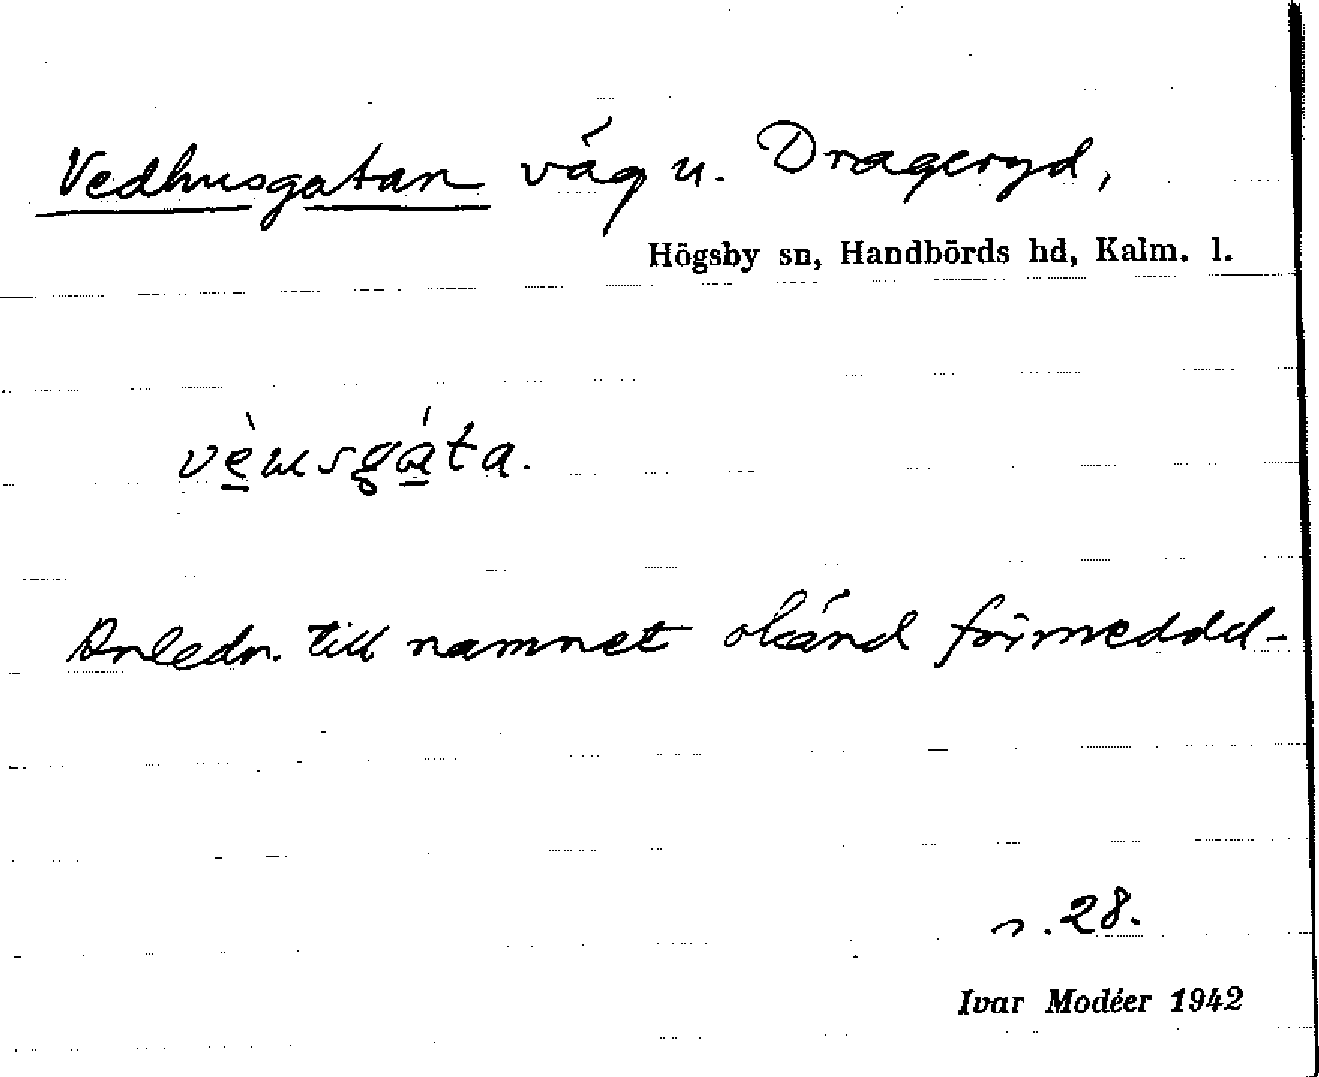 Vedhusgatan väg u. Drageryd,
Högsby sn, Handbörds hd, Kalm. l.
vè̱usgá̱ta.
Anledn. till namnet okänd för meddel-
s. 28.
Ivar Modéer 1942